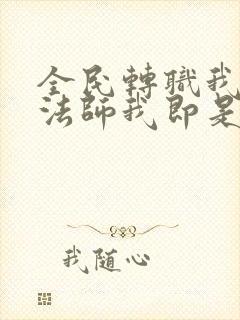 全民轉職我
法師我即是
我随心